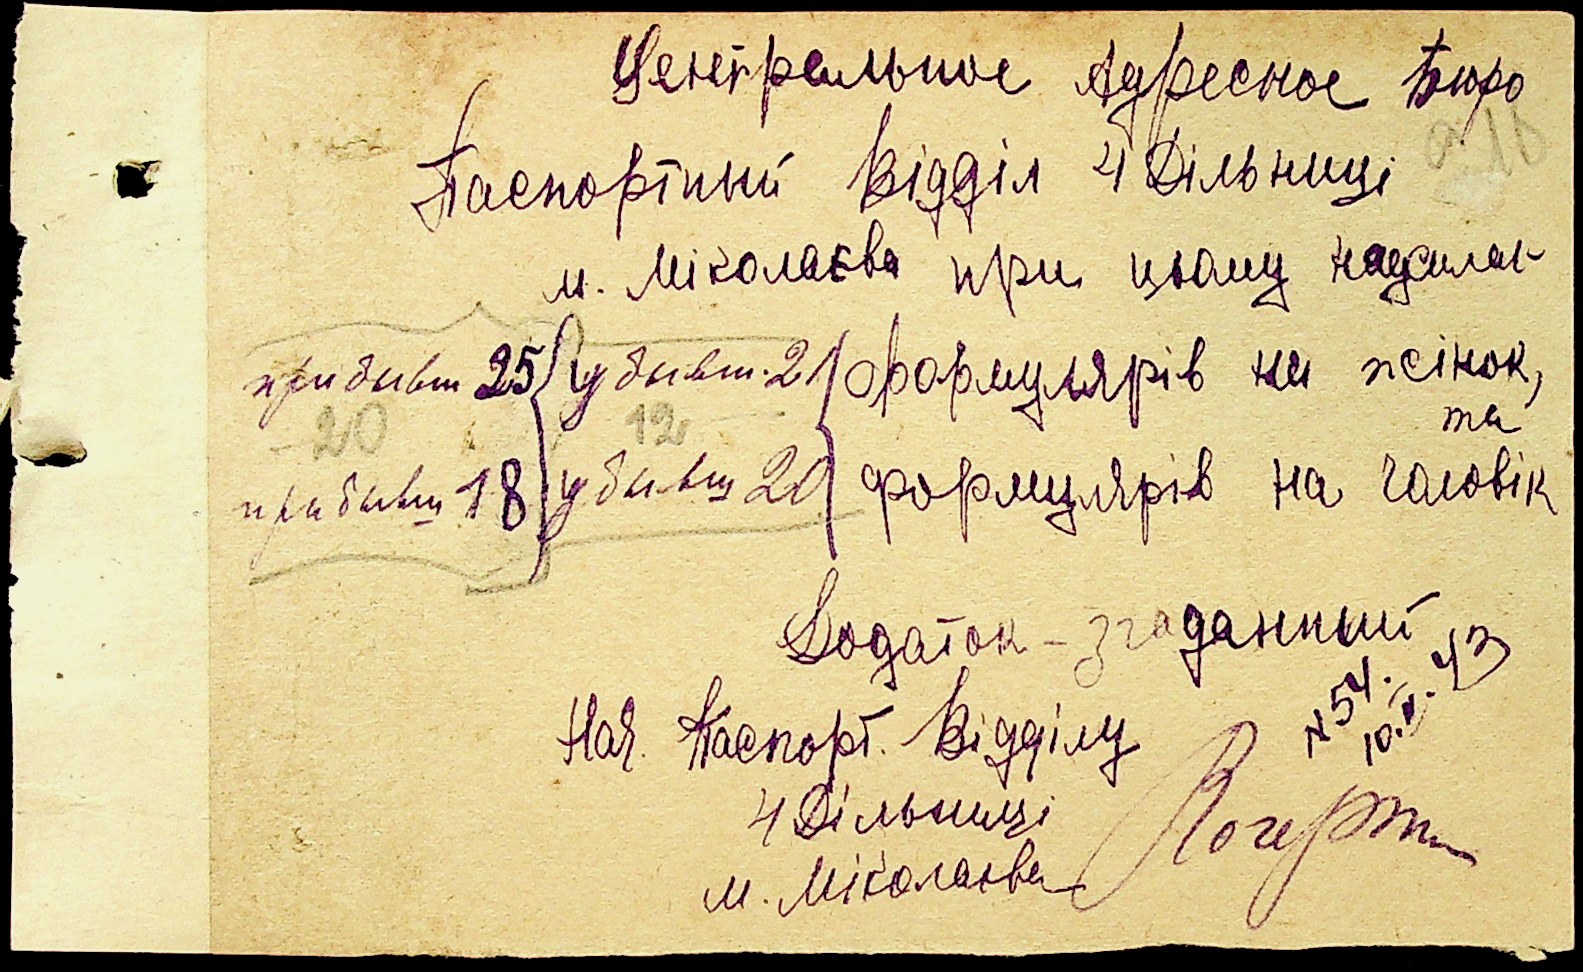 Центральное Адресное Бюро
Паспортний Відділ 4 Дільниці
м. Міколаєва при цьому надсилає
прибывш 25 убывш. 21 формулярів на жінок,
та
20 12
прибывш 18 убывш 20 формулярів на чоловік
Додаток - згаданный
Нач. Паспорт. Відділу
4 Дільниці
м. Міколаєва
N 54.
43